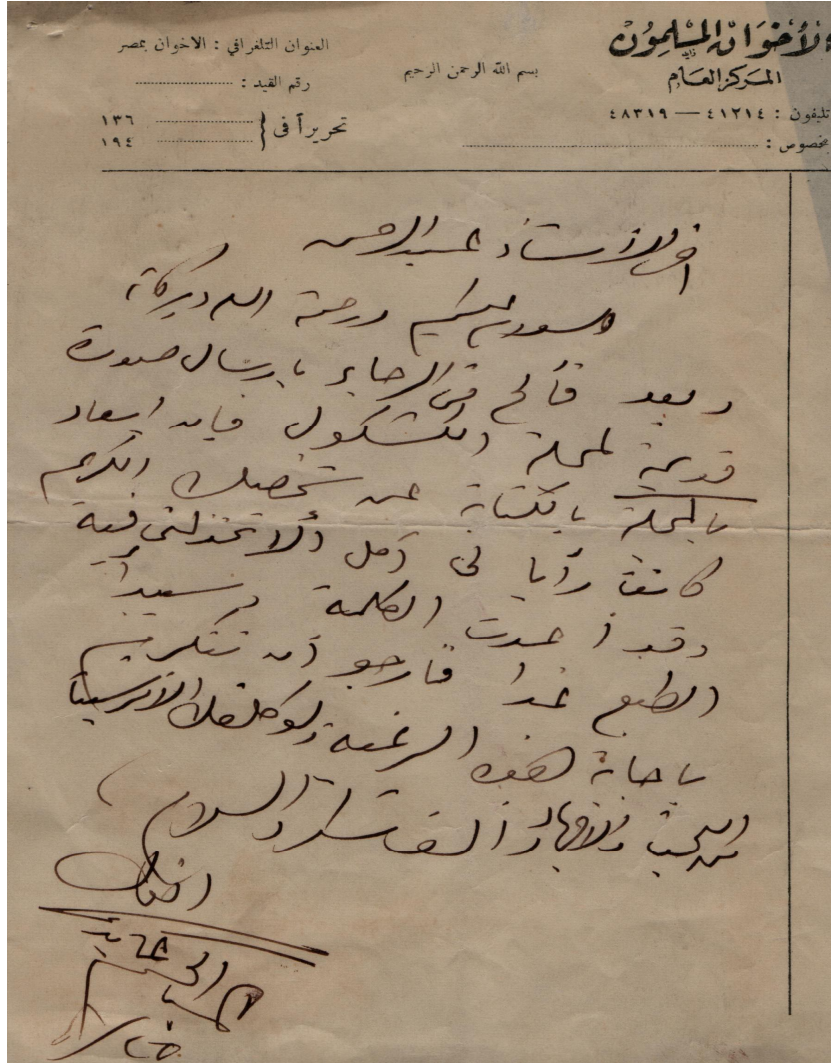 الإخوان المسلمون
المركز العام
تليفون : ٤١٢١٤ — ٤٨٣١٩
بخصوص :
بسم الله الرحمن الرحيم
العنوان التلغرافي : الاخوان بمصر
رقم القيد :
تحريراً فى { ١٣٦
١٩٤
أخى الأستاذ عبد
السلام عليكم ورحمة الله وبركاته
وبعد فألح فى الرجاء بإرسال صورة
قديمة لمجلة الكشكول فإن
بالمجلة بالكتابة عن شخصك الكريم
كانت رأيا لى آمل ألا تخذلنى فيه
وقد أعدت الكلمة
الطبع غدا فأرجو أن تتكرم
بإجابة هذه الرغبة ولو كلفك الأمر شيئا
من البحث والإجهاد والسلام
أخوك